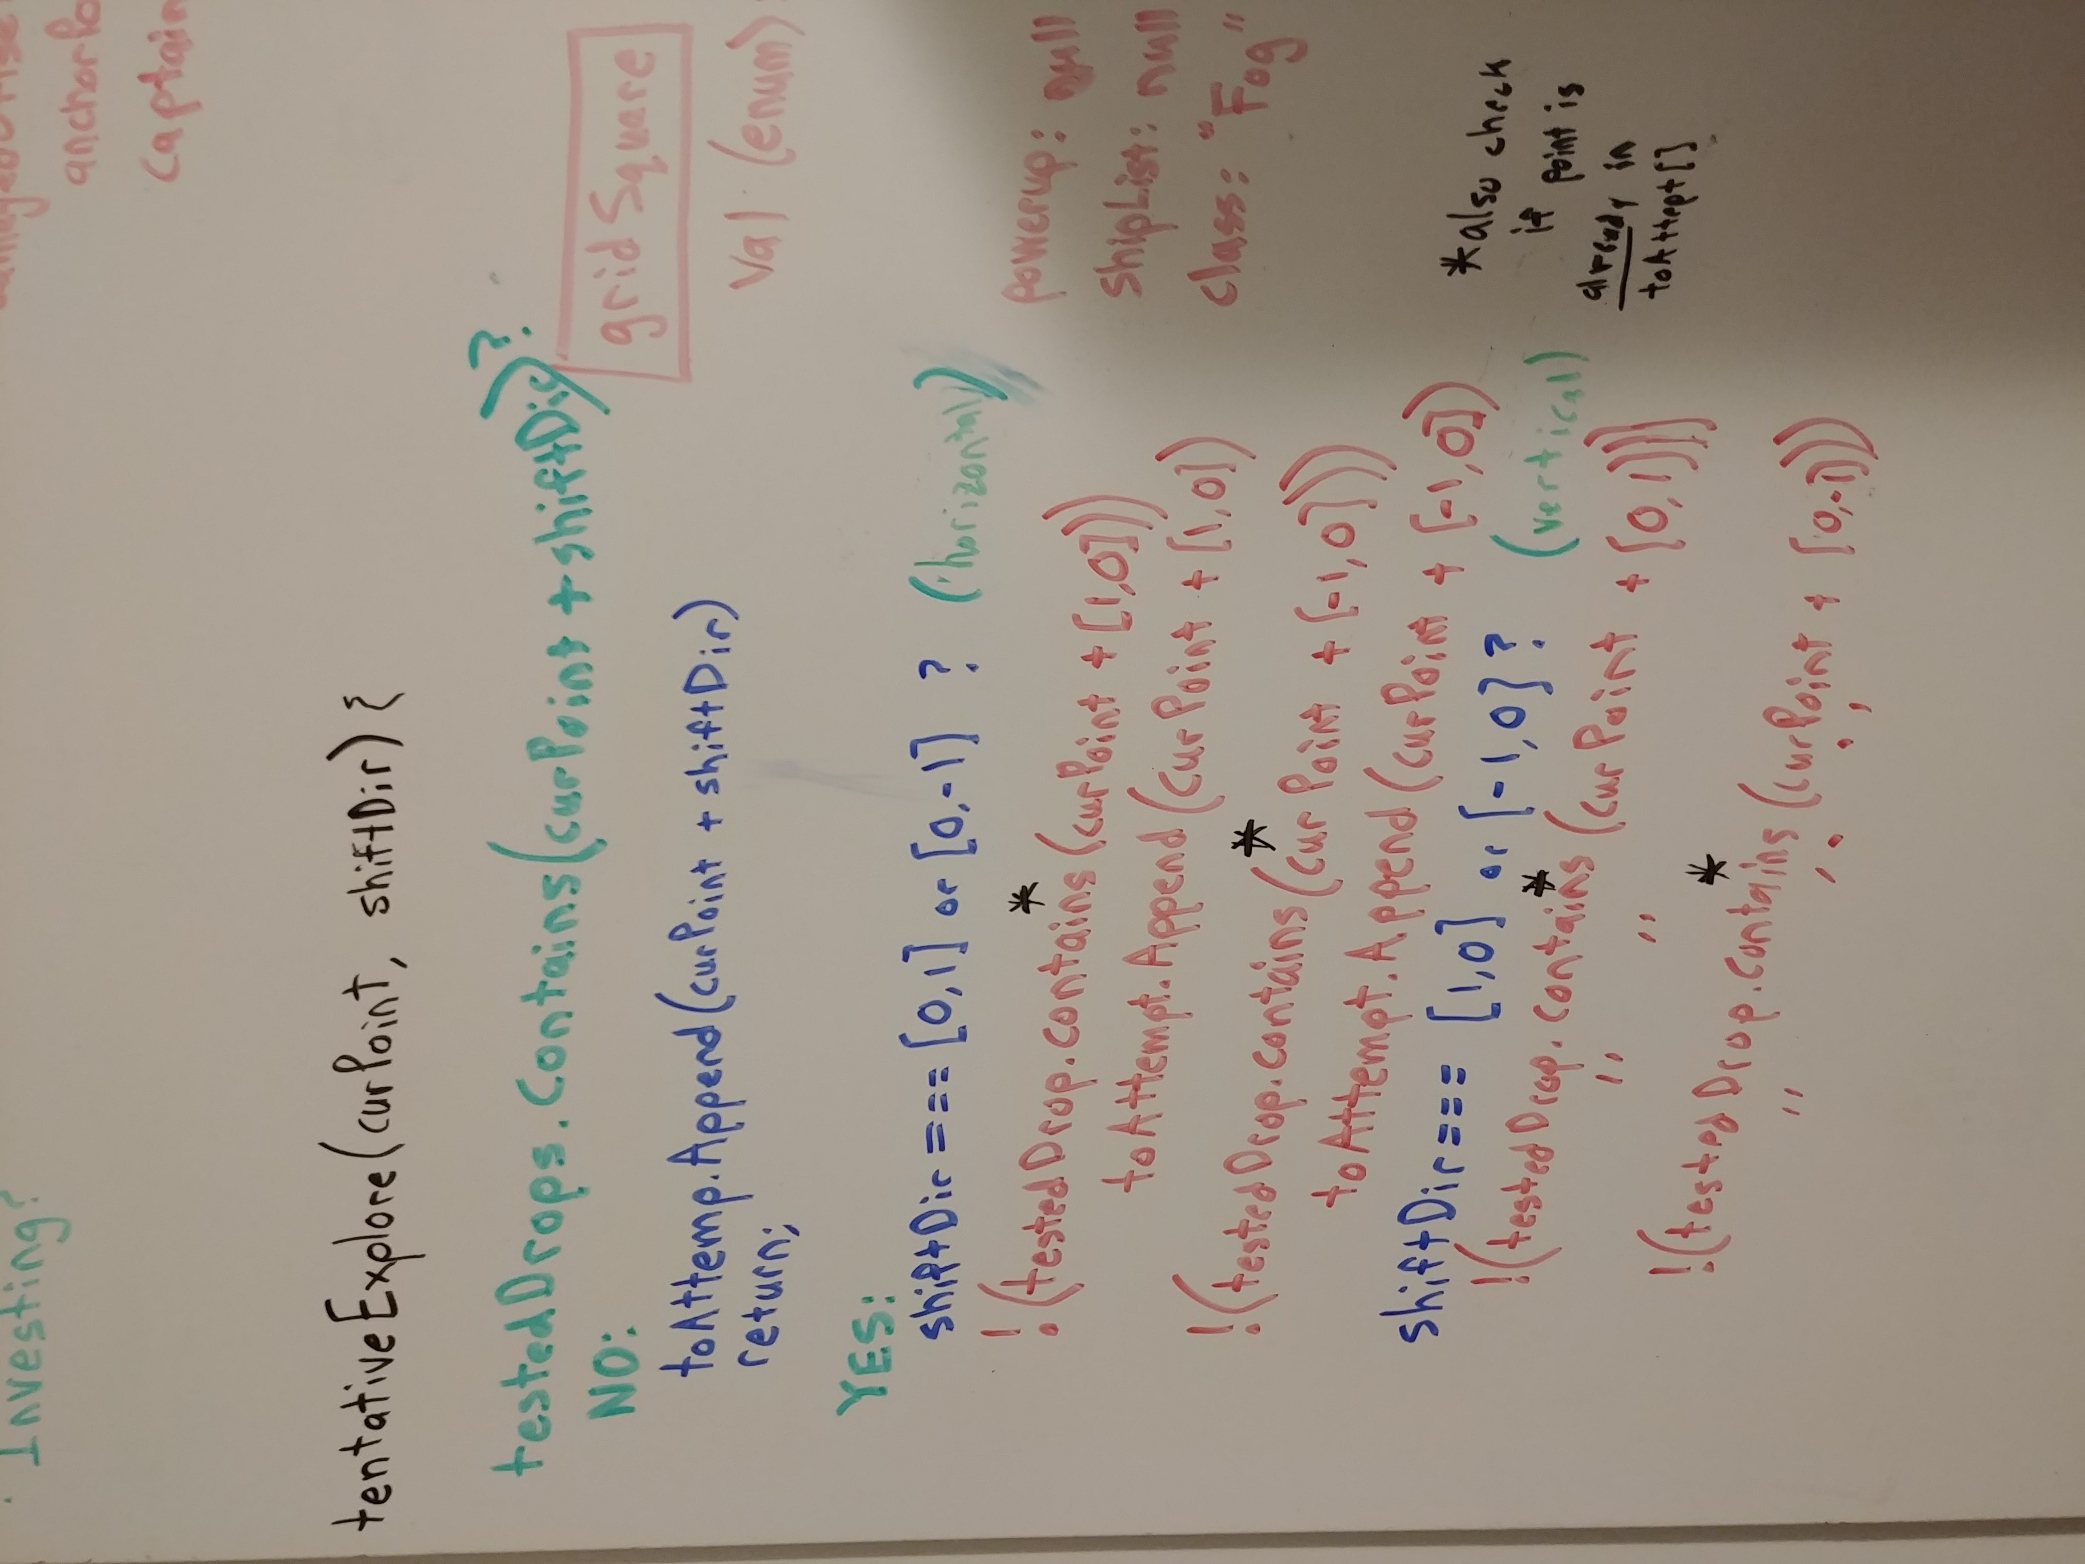 Investing?
anchorPo
captain
tentativeExplore(curPoint, shiftDir) {
testedDrops.Contains(curPoint + shiftDir)?
NO:
toAttemp.Append(curPoint + shiftDir)
return;
gridSquare
Val (enum)
YES:
shiftDir === [0,1] or [0,-1] ? (horizontal)
!(testedDrop.contains*(curPoint + [1,0]))
toAttempt.Append(curPoint + [1,0])
!(testedDrop.contains*(curPoint + [-1,0]))
toAttempt.Append(curPoint + [-1,0])
shiftDir === [1,0] or [-1,0] ? (vertical)
!(testedDrop.contains*(curPoint + [0,1]))
" "
!(testedDrop.contains*(curPoint + [0,-1]))
" " "
powerup: null
shipList: null
class: "Fog"
*also check
if point is
already in
toAttept[]